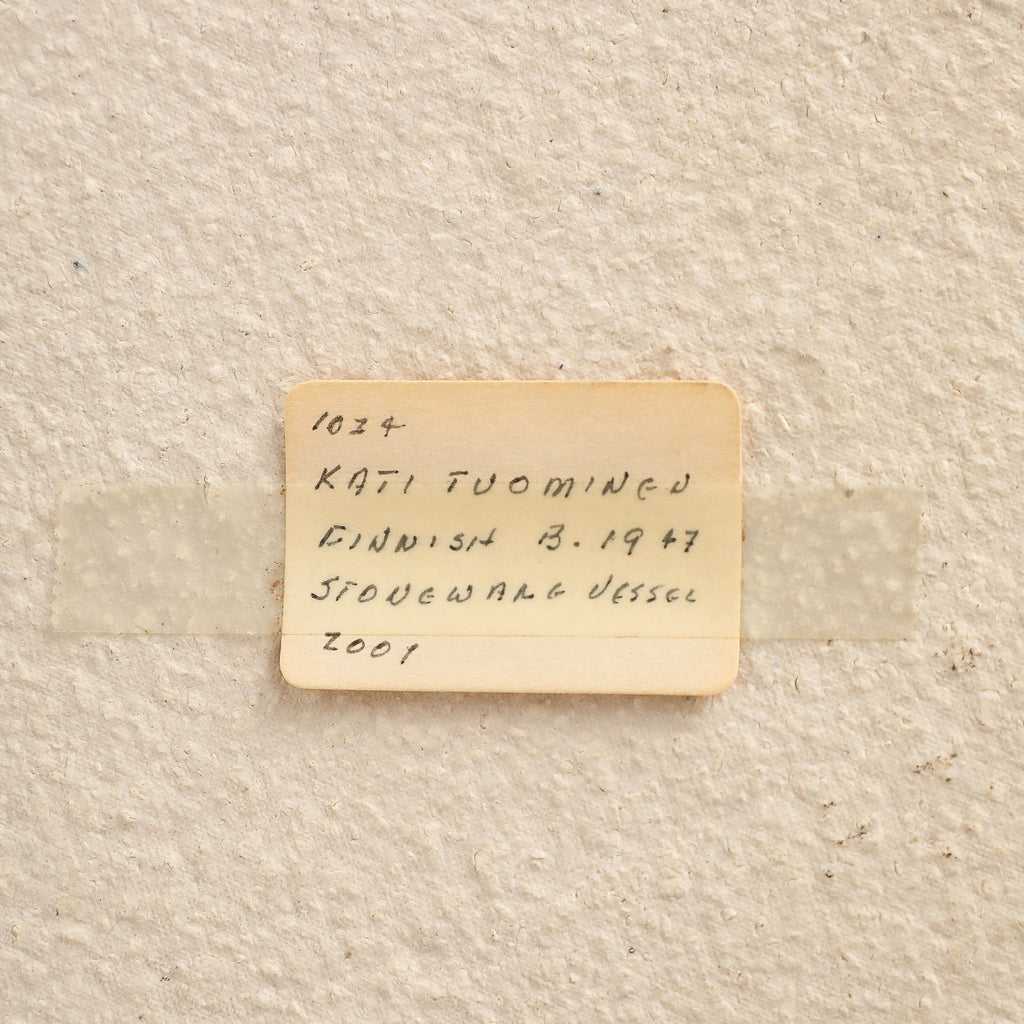 1034
KATI TUOMINEN
FINNISH B. 1947
STONEWARE VESSEL
2001